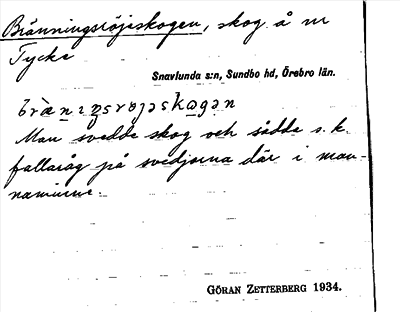 Bränningsröjeskogen, skog å nr
Tycke
Snavlunda s:n, Sundbo hd, Örebro län.
Man svedde skog och sådde s. k.
fallaråg på svedjorna där i man-
naminne.
GÖRAN ZETTERBERG 1934.